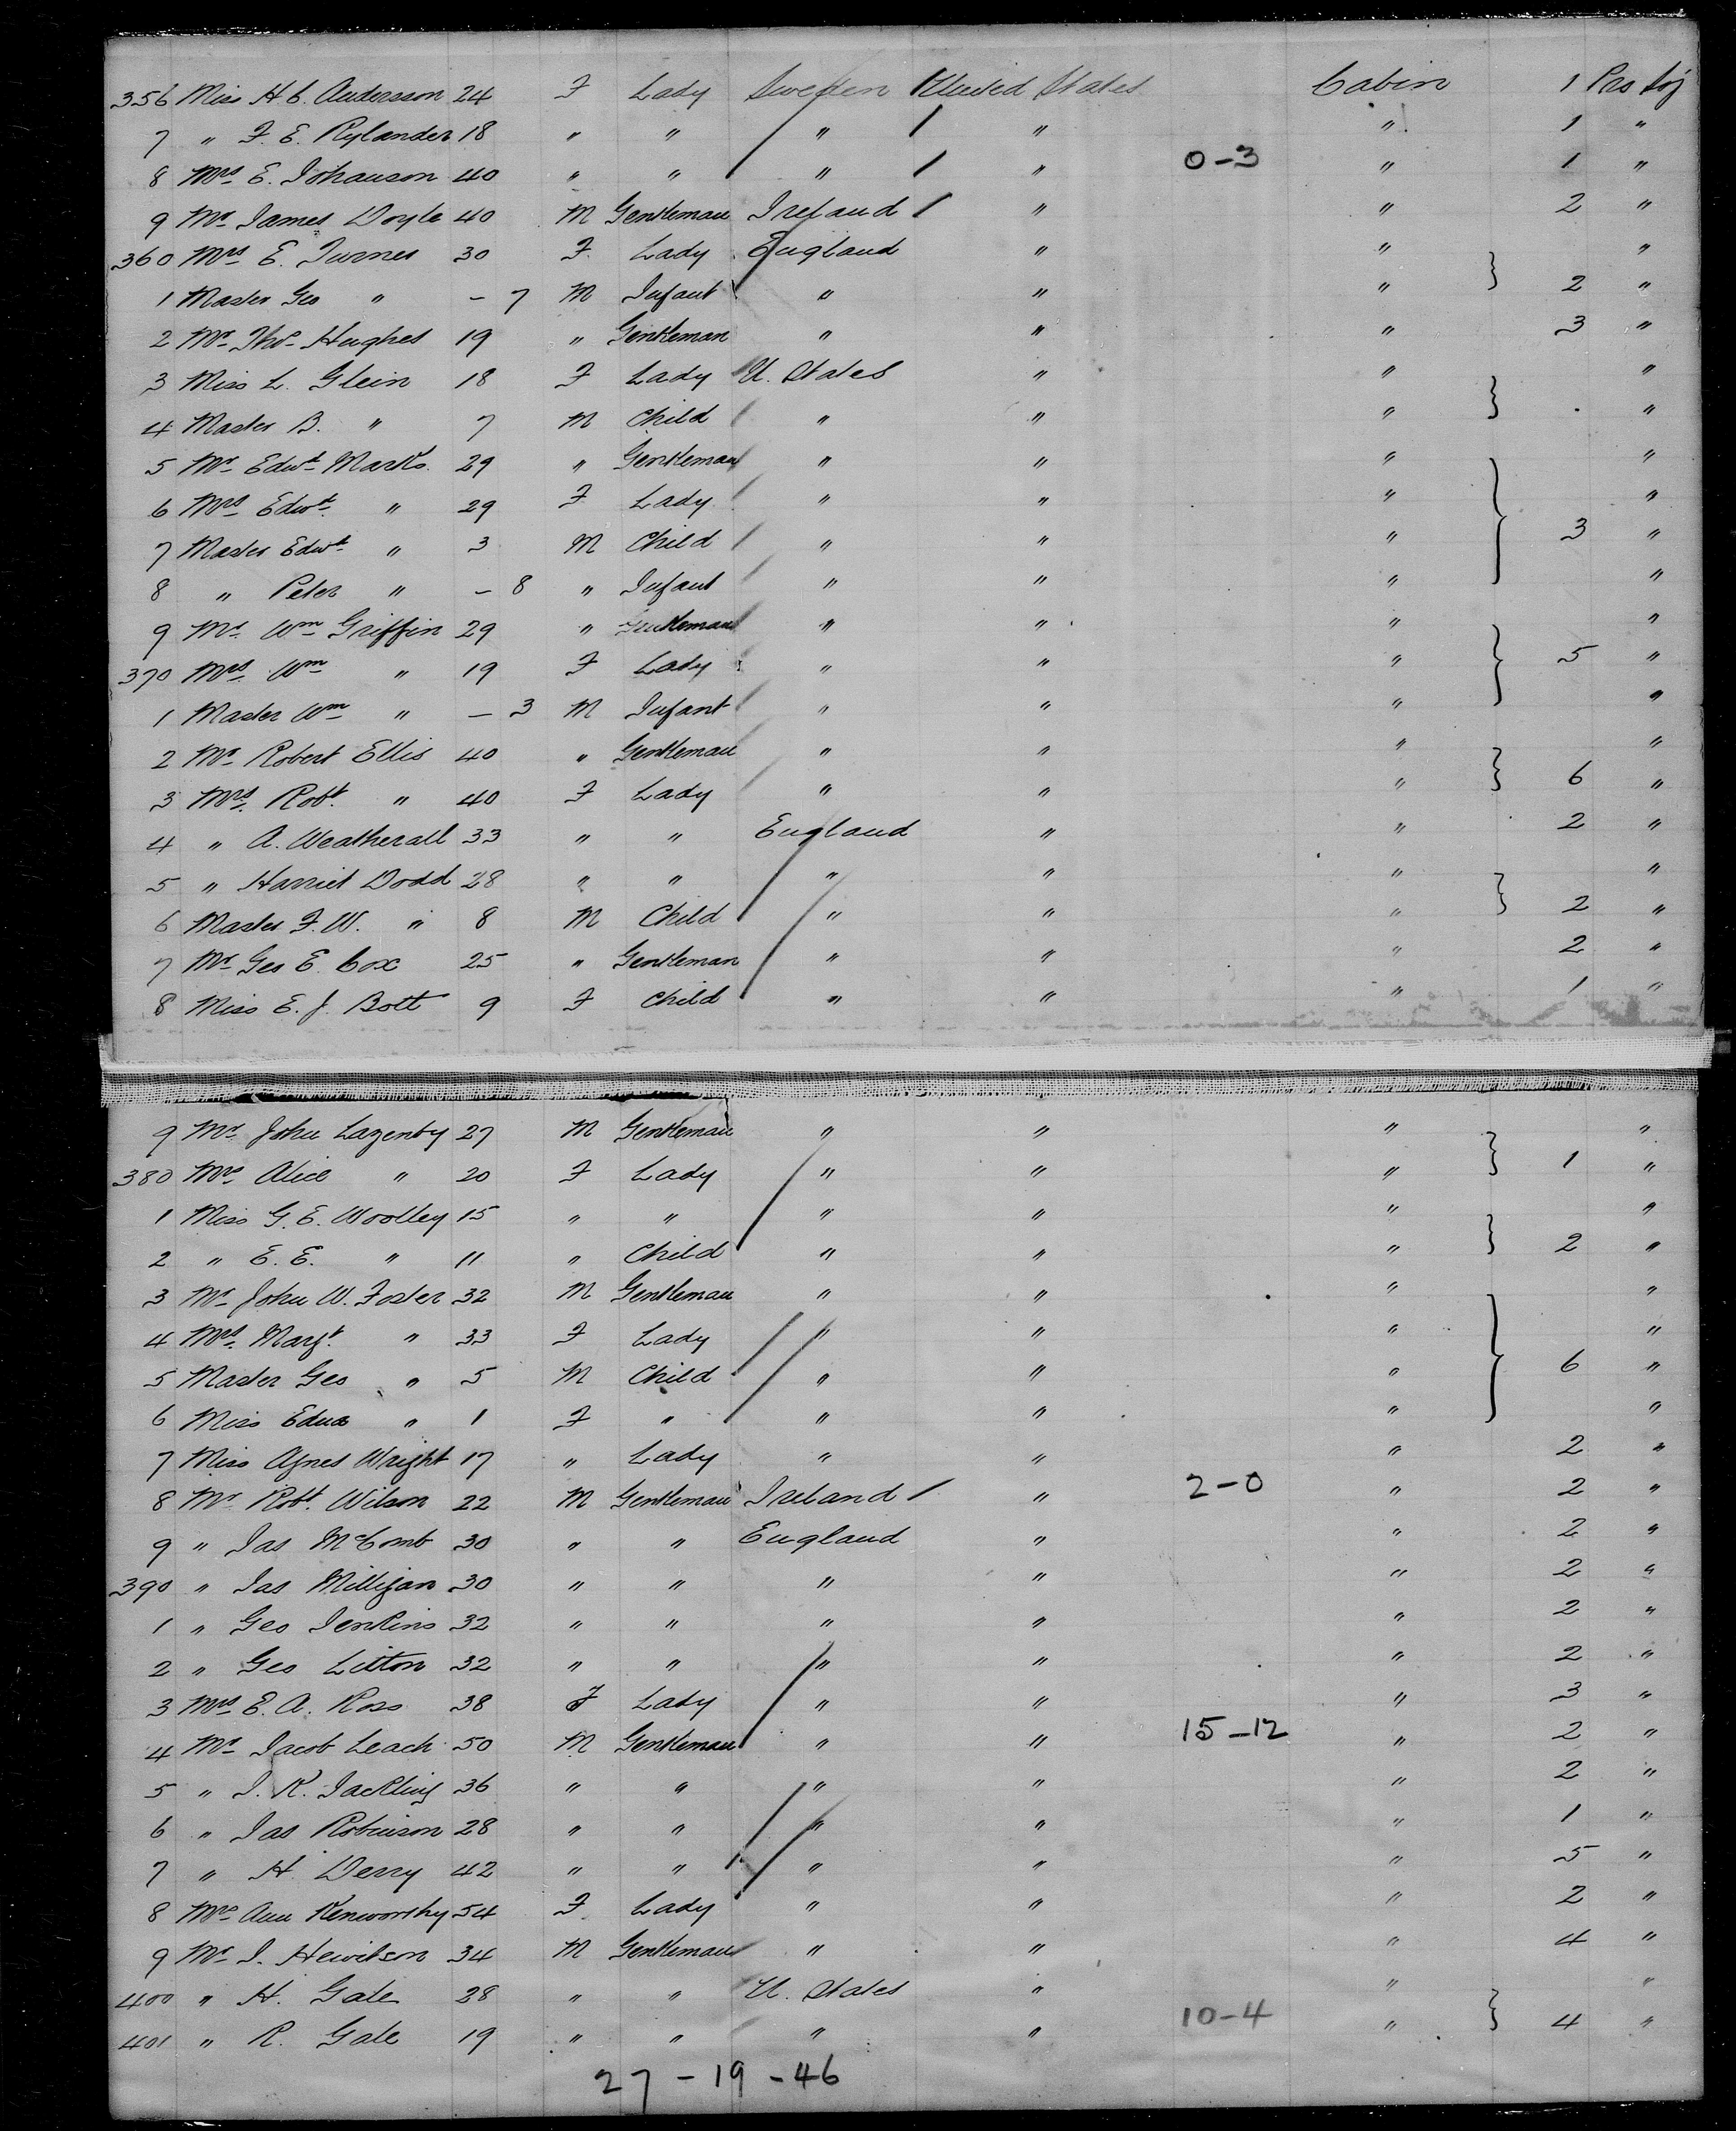 356 Miss H. C. Andersson 24 F Lady Sweden United States Cabin 1 Pro Soj
7 " F. E. Rylander 18 " " " " " 1 "
8 Mrs E. Johanson 40 " " " " 0-3 " 1 "
9 Mr James Doyle 40 M Gentleman Ireland " " 2 "
360 Mrs E. Turner 30 F Lady England " " "
1 Master Geo " - 7 M Infant " " " 2 "
2 Mr Thos Hughes 19 " Gentleman " " " 3 "
3 Miss L. Glein 18 F Lady U. States " " "
4 Master B. " 7 M Child " " " . "
5 Mr Edwd Marks 29 " Gentleman " " " "
6 Mrs Edwd " 29 F Lady " " " "
7 Master Edwd " 3 M Child " " " 3 "
8 " Peter " - 8 " Infant " " " "
9 Mr Wm Griffin 29 " Gentleman " " " "
370 Mrs Wm " 19 F Lady " " " 5 "
1 Master Wm " - 3 M Infant " " " "
2 Mr Robert Ellis 40 " Gentleman " " " "
3 Mrs Robt " 40 F Lady " " " 6 "
4 " A. Weatherall 33 " " England " " 2 "
5 " Harriet Dodd 28 " " " " " "
6 Master F. W. " 8 M Child " " " 2 "
7 Mr Geo E. Cox 25 " Gentleman " " " 2 "
8 Miss E. J. Bott 9 F Child " " " 1 "
9 Mr John Lazenby 27 M Gentleman " " " "
380 Mrs Alice " 20 F Lady " " " 1 "
1 Miss G. E. Woolley 15 " " " " " "
2 " E. E. " 11 " Child " " " 2 "
3 Mr John W. Foster 32 M Gentleman " " " "
4 Mrs Margt " 33 F Lady " " " "
5 Master Geo " 5 M Child " " " 6 "
6 Miss Edna " 1 F " " " " "
7 Miss Agnes Wright 17 " Lady " " " 2 "
8 Mr Robt Wilson 22 M Gentleman Ireland " 2-0 " 2 "
9 " Jas McComb 30 " " England " " 2 "
390 " Jas Milligan 30 " " " " " 2 "
1 " Geo Jenkins 32 " " " " " 2 "
2 " Geo Litton 32 " " " " " 2 "
3 Mrs E. A. Ross 38 F Lady " " " 3 "
4 Mr Jacob Leach 50 M Gentleman " " 15-12 " 2 "
5 " J. K. Jackling 36 " " " " " 2 "
6 " Jas Robinson 28 " " " " " 1 "
7 " H. Derry 42 " " " " " 5 "
8 Mrs Ann Kenworthy 54 F Lady " " " 2 "
9 Mr J. Hewitson 34 M Gentleman " " " 4 "
400 " H. Gale 28 " " U. States " " "
401 " R. Gale 19 " " " " 10-4 " 4 "
27-19-46